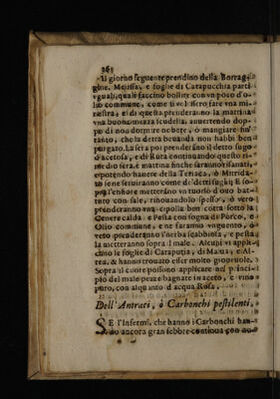 261
Il giorno seguente prendino della Borrag-
gine, Melissa, e foglie di Catapucchia parti
eguali, quale faccino bollire con vn poco d'o-
lio commune, come si volessero fare vna mi-
nestra; e di questa prenderanno la mattina
vna buona mezza scudella, auuertendo dop-
po di non dormire ne bere, ò mangiare in-
tanto, che la detta beuanda non habbi ben
purgato. La sera poi prenderanno il detto sugo
d'acetosa, e di Ruta continuando questo ri-
medio sera, e mattina finche saranno risanati,
e potendo hauere della Teriaca, ò Mitrida-
to se ne seruiranno come di detti sughi, e so-
pra l'enfiore metteranno vn tuorlo d'ouo bat-
tuto con sale, rinouandolo spesso, ò vero
prenderanno vna cipolla ben cotta sotto la
Cenere calda, e Pesta con sogna di Porco, e
Olio commune, e ne faranno vnguento, ò
vero prenderanno l'herba scabbiosa, e pesta
la metteranno sopra il male. Alcuni vi appli-
cano le foglie di Catapuzia, di Malua, e Al-
tea, & hanno trouato esser molto gioueuole.
Sopra il cuore possono applicare nel princi-
pio del male pezze bagnate in aceto, e vino
puro, con alquanto d'acqua Rosa.
Dell'Antraci, ò Carbonchi pestilenti.
SE l'Infermi, che hanno i Carbonchi han-
no ancora gran febbre continua con